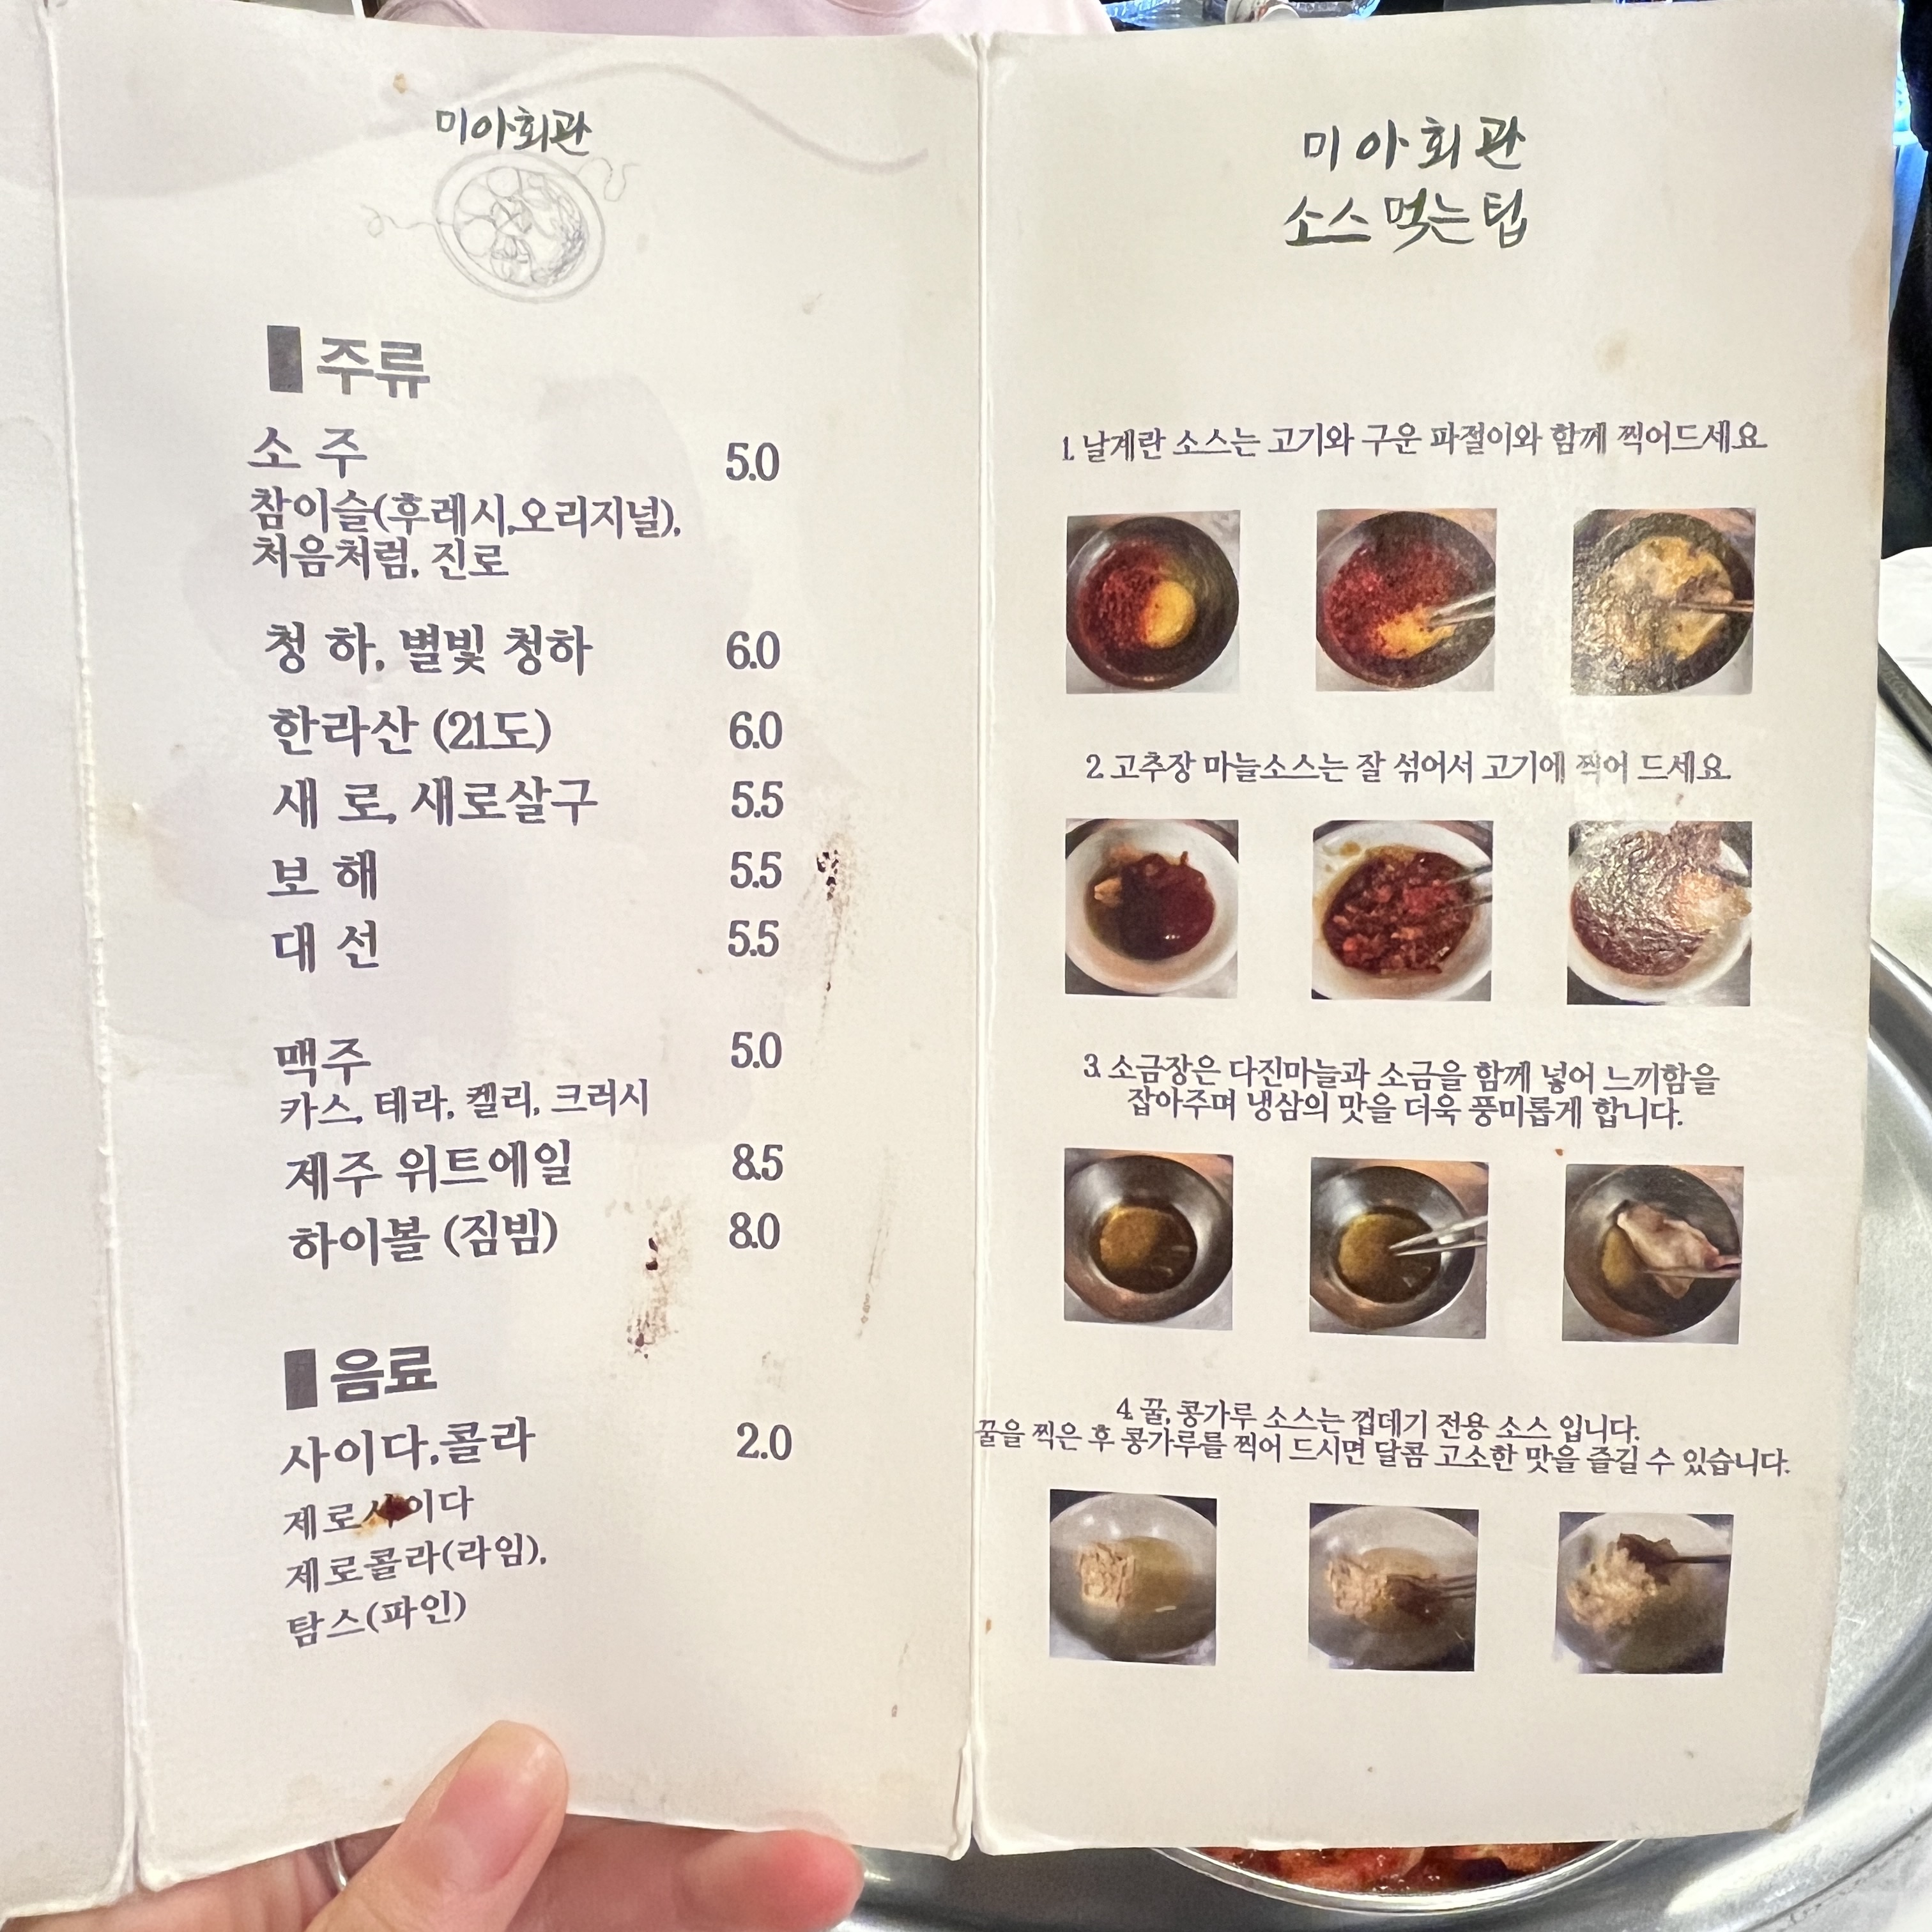 미아회관
주류
소 주 5.0
참이슬(후레시,오리지널),
처음처럼, 진로
청 하, 별빛 청하 6.0
한라산 (21도) 6.0
새 로, 새로살구 5.5
보 해 5.5
대 선 5.5
맥주 5.0
카스, 테라, 켈리, 크러시
제주 위트에일 8.5
하이볼 (짐빔) 8.0
음료
사이다,콜라 2.0
제로사이다
제로콜라(라임),
탐스(파인)
미아회관
소스 먹는 팁
1. 날계란 소스는 고기와 구운 파절이와 함께 찍어드세요.
2. 고추장 마늘소스는 잘 섞어서 고기에 찍어 드세요.
3. 소금장은 다진마늘과 소금을 함께 넣어 느끼함을
잡아주며 냉삼의 맛을 더욱 풍미롭게 합니다.
4. 꿀, 콩가루 소스는 껍데기 전용 소스 입니다.
꿀을 찍은 후 콩가루를 찍어 드시면 달콤 고소한 맛을 즐길 수 있습니다.